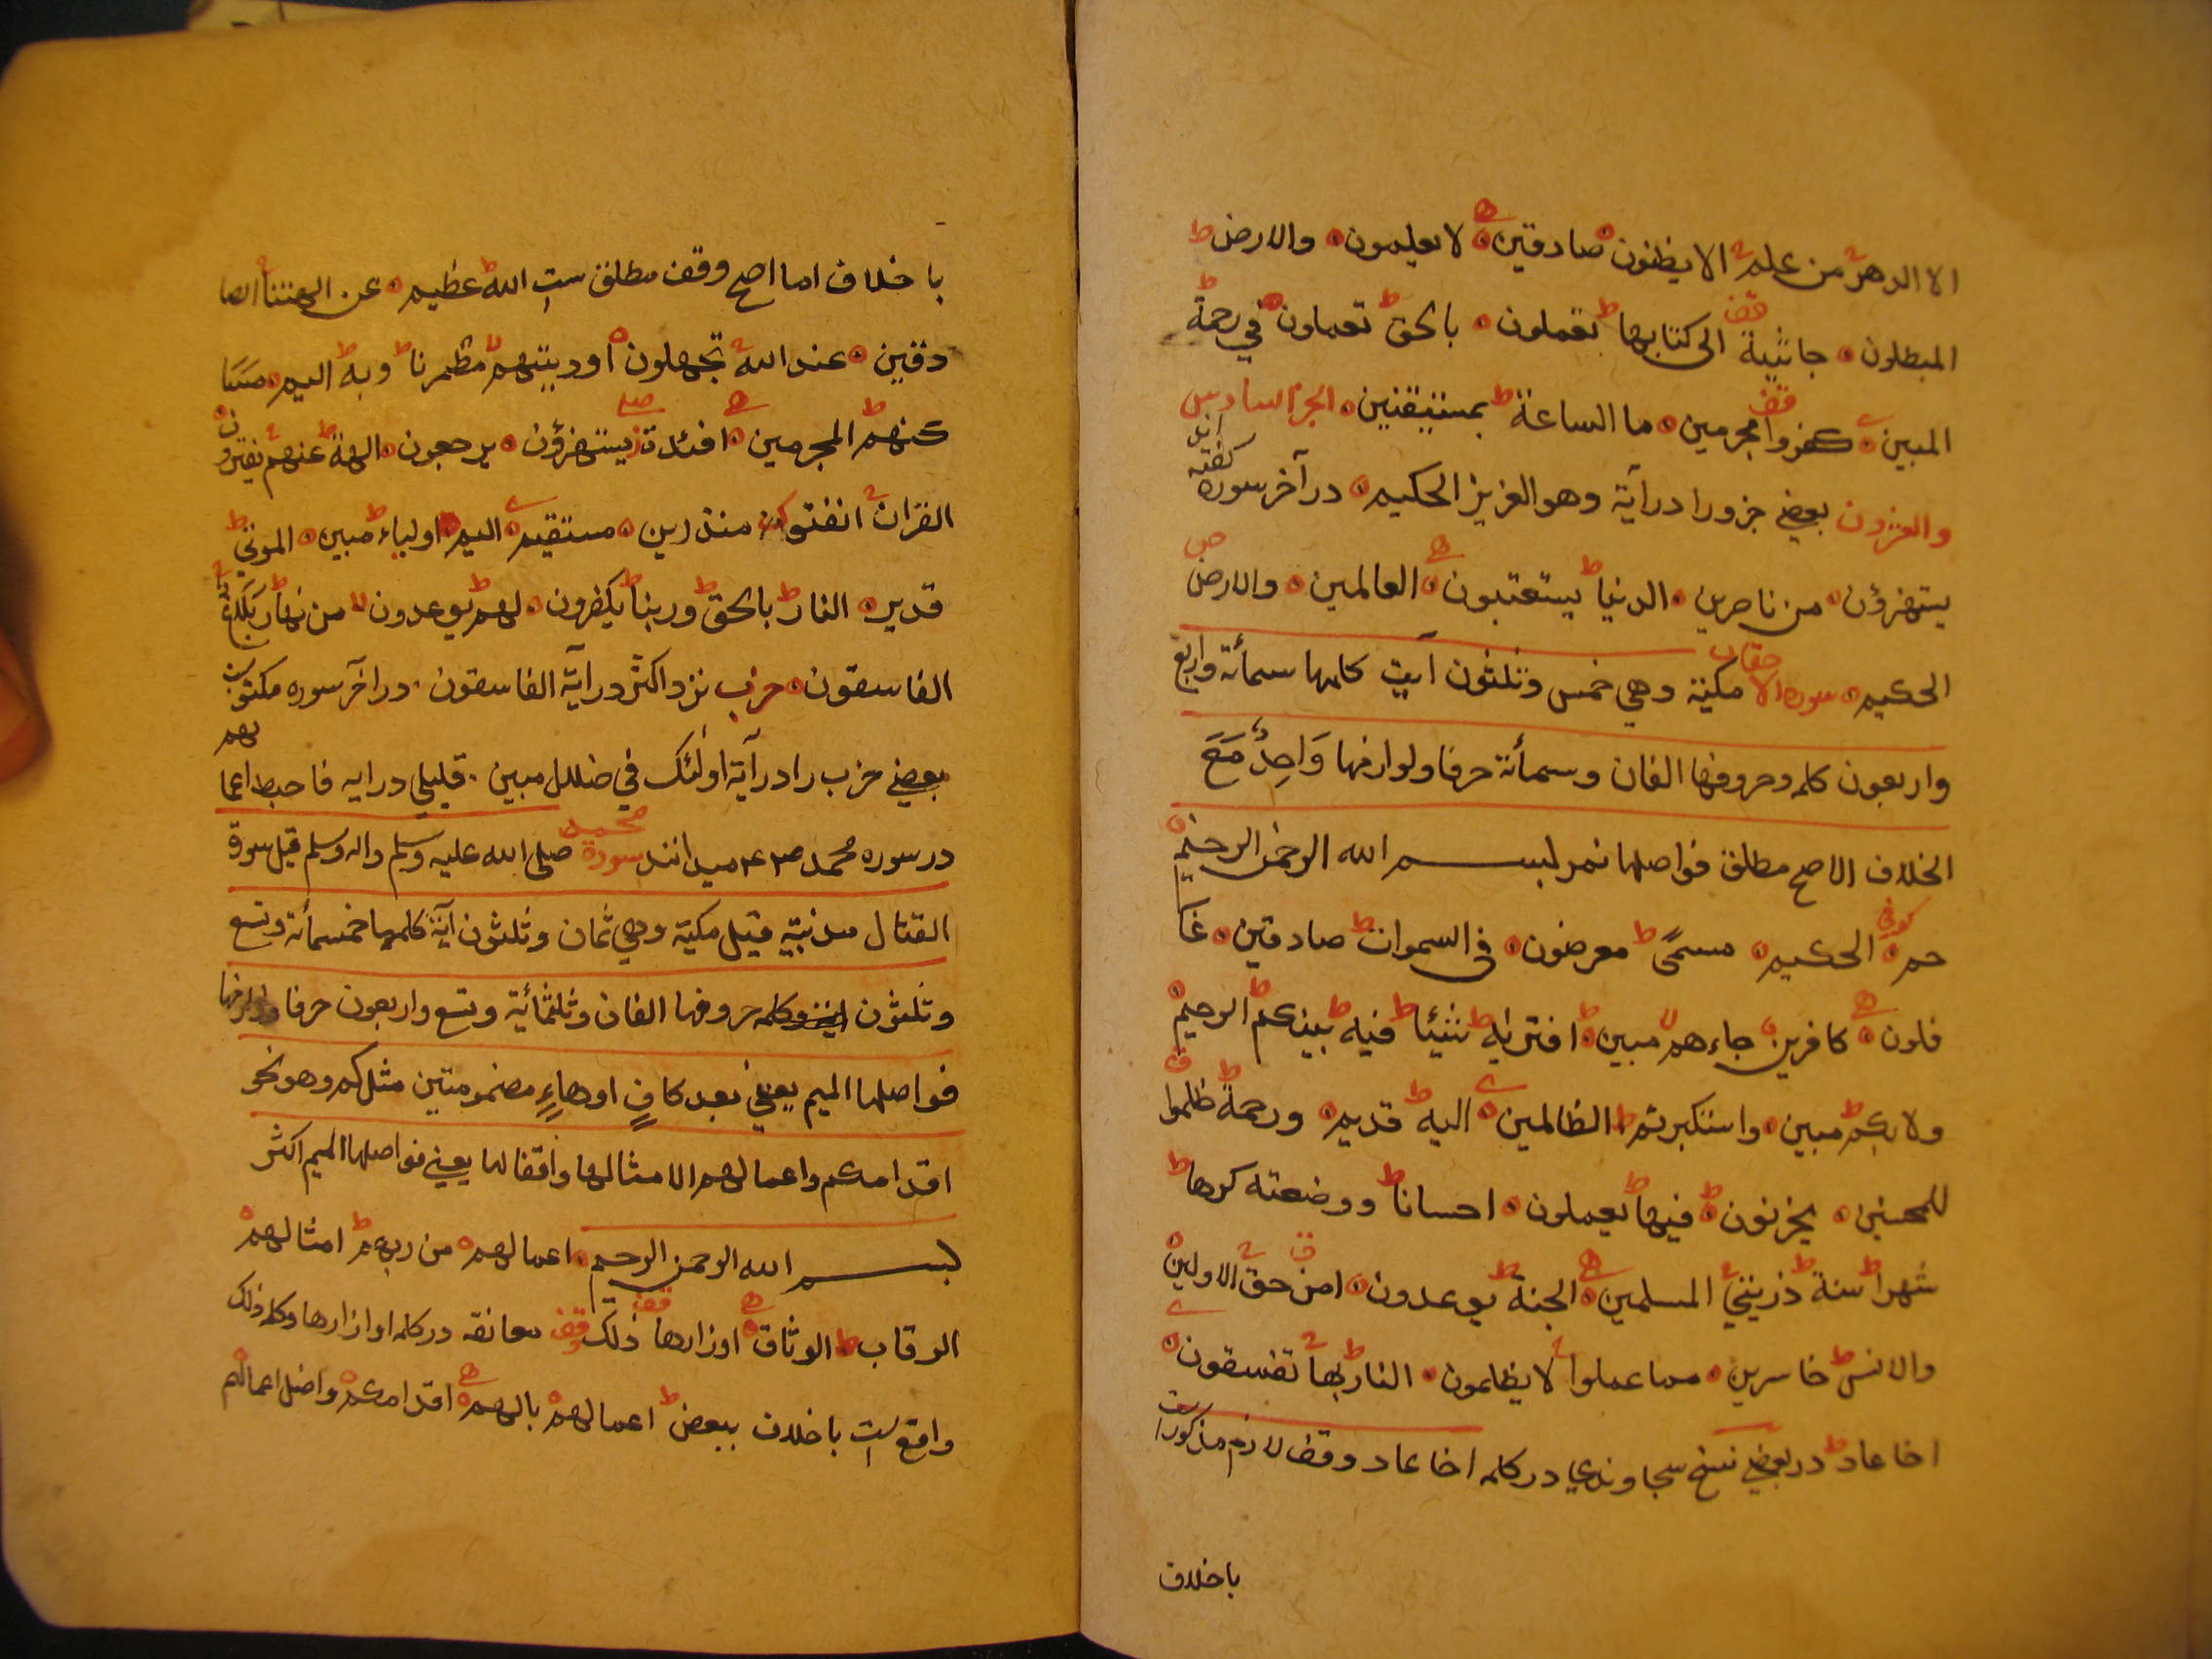 الا الدهر من علم الا يظنون صادقين لا يعلمون والارض ط
المبطلون جاثية قف الى كتابها ط تعملون بالحق ط تعملون في رحمة ط
المبين كفروا قف مجرمين ما الساعة ط بمستيقنين الجزء السادس
والعشرون بعضي جزو را در آية وهو العزيز الحكيم در آخر سوره گفته اند
يستهزؤن من ناصرين الدنيا ط يستعتبون العالمين والارض ص
الحكيم سورة الاحقاف مكية وهي خمس وثلثون آيت كلمها ستمائة واربع
واربعون كلمه وحروفها الفان وستمأئة حرفا ولوازمها وَاحِدٌ مَعَ
الخلاف الاصح مطلق فواصلها نمر بسم الله الرحمن الرحيم
حم كوفي الحكيم مسمًى ط معرضون في السموات ط صادقين غا
فلون كافرين جاءهم لا مبين ط افتريه ط شيئا ط فيه ط بينكم ط الرحيم
ولا بكم ط مبين واستكبرتم ط الظالمين اليه ط قديم ورحمة ط ظلموا ق
للمحسنين يحزنون فيها يعملون احسانا ط ووضعته كرها ط
شهرا ط سنة ذريتي المسلمين الجنة ط يوعدون امن ق حق الاولين
والانس ط خاسرين مما عملوا لا يظلمون النار ط بها تفسقون
اخا عاد ط در بعضي نسخ سجاوندي در كلمه اخا عاد وقف لازم مذكور است
با خلاف
با خلاف اما اصح وقف مطلق ست الله ط عظيم عن الهتنا الصا
دقين عند الله تجهلون اوديتهم لا ممطرنا ط وبه ط اليم مسا
كنهم ط المجرمين افئدة يستهزؤن يرجعون الهة ط عنهم يفترون
القران انصتوا منذرين مستقيم اليم اولياء ط مبين الموتى ط
قدير النار ط بالحق ط وربنا ط يكفرون لهم ط يوعدون لا من نهار ط بلاغ
الفاسقون حزب نزد اكثر در آية الفاسقون در آخر سوره مكتوبست
بعضي حزب را در آية اولئك في ضلل مبين قليلي در ايه فاحبط اعمالهم
در سوره محمد ص م ميدانند سورة محمد صلى الله عليه وسلم واله وسلم قيل سورة
القتال مدنيّة قيل مكية وهي ثمان وثلثون آية كلمها خمسمائة وتسع
وثلثون كلمه حروفها الفان وثلثمائة وتسع واربعون حرفا ولوازمها
فواصلها الميم يعني بعد كافٍ او هاءٍ مضمومتين مثل كم وهو نحو
اقدامكم واعمالهم الا امثالها واقفالها يعني فواصلها الميم اكثر
بسم الله الرحمن الرحيم اعمالهم من ربهم ط امثالهم
الرقاب ط الوثاق اوزارها قف ذلك قف معانقه در كلمه اوزارها وكلمه ذلك
واقع است با خلاف ببعض ط اعمالهم بالهم اقدامكم واضل اعمالهم